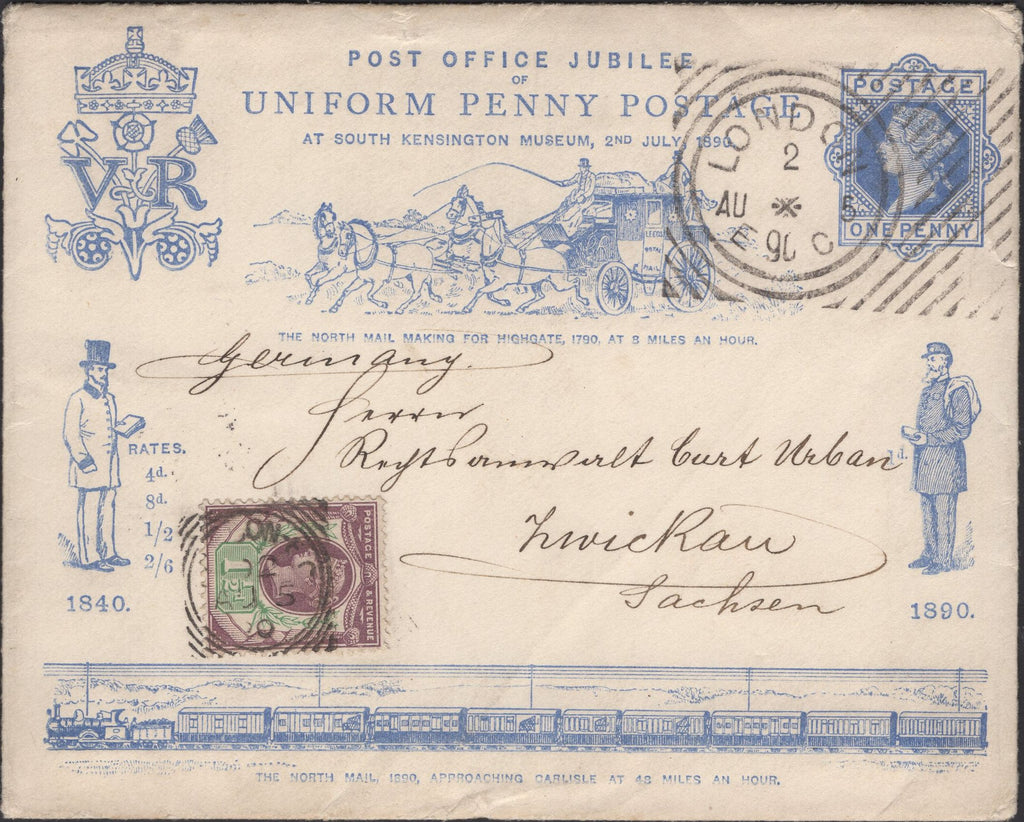 POST OFFICE JUBILEE
OF
UNIFORM PENNY POSTAGE
AT SOUTH KENSINGTON MUSEUM, 2ND JULY, 1890
VR
POSTAGE
ONE PENNY
LONDON
2
AU ※ 5
90
E C
THE NORTH MAIL MAKING FOR HIGHGATE, 1790, AT 8 MILES AN HOUR.
Germany.
Herrn
Rechtsanwalt Curt Urban
Zwickau
Sachsen
RATES.
4d.
8d.
1/2
2/6
1d.
1840.
1890.
POSTAGE & REVENUE
THE NORTH MAIL, 1890, APPROACHING CARLISLE AT 48 MILES AN HOUR.